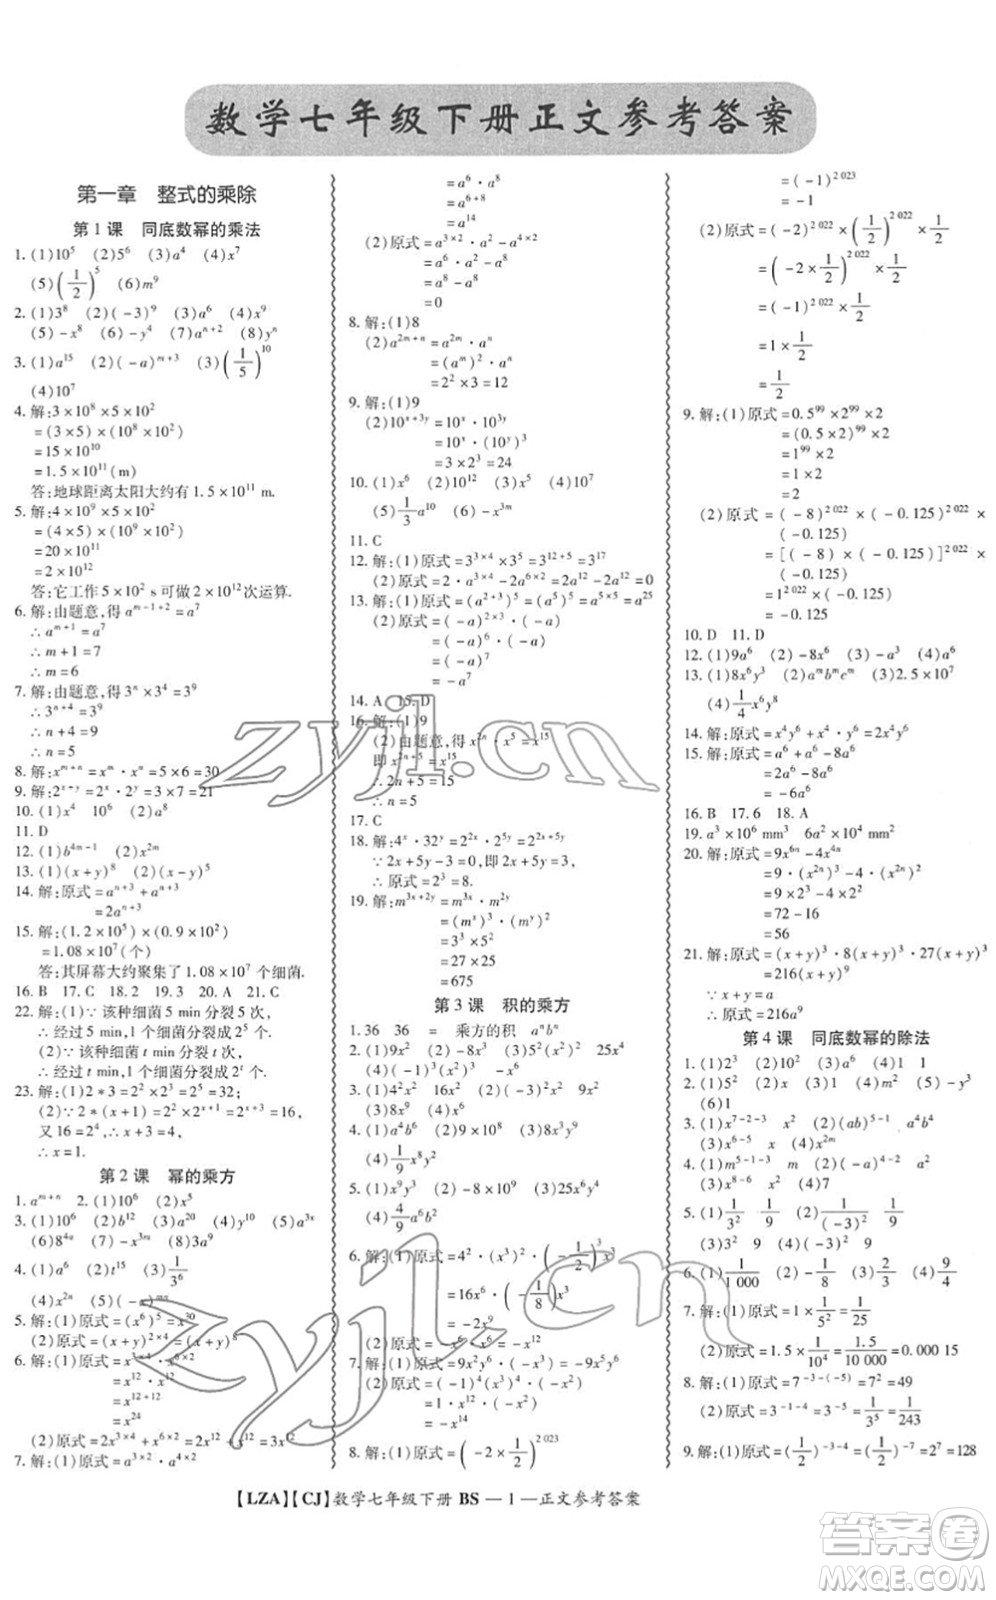 数学七年级下册正文参考答案
第一章 整式的乘除
第1课 同底数幂的乘法
1. (1)10⁵ (2)5⁶ (3)a⁴ (4)x⁷
(5)(1/2)⁵ (6)m⁹
2. (1)3⁸ (2)(-3)⁹ (3)a⁶ (4)x⁹
(5)-x⁸ (6)-y⁴ (7)aⁿ⁺² (8)yⁿ
3. (1)a¹⁵ (2)(-a)ᵐ⁺³ (3)(1/5)¹⁰
(4)10⁷
4. 解:3×10⁸×5×10²
=(3×5)×(10⁸×10²)
=15×10¹⁰
=1.5×10¹¹(m)
答:地球距离太阳大约有1.5×10¹¹ m.
5. 解:4×10⁹×5×10²
=(4×5)×(10⁹×10²)
=20×10¹¹
=2×10¹²
答:它工作5×10² s可做2×10¹²次运算.
6. 解:由题意,得aᵐ⁻¹⁺²=a⁷
∴aᵐ⁺¹=a⁷
∴m+1=7
∴m=6
7. 解:由题意,得3ⁿ×3⁴=3⁹
∴3ⁿ⁺⁴=3⁹
∴n+4=9
∴n=5
8. 解:xᵐ⁺ⁿ=xᵐ·xⁿ=5×6=30
9. 解:2ˣ⁺ʸ=2ˣ×2ʸ=3×7=21
10. (1)x⁴ 10⁶ (2)a⁸
11. D
12. (1)b⁴ᵐ⁻¹ (2)x²ᵐ
13. (1)(x+y)⁸ (2)(x-y)⁵
14. 解:原式=aⁿ⁺³+aⁿ⁺³
=2aⁿ⁺³
15. 解:(1.2×10⁵)×(0.9×10²)
=1.08×10⁷(个)
答:其屏幕大约聚集了1.08×10⁷个细菌.
16. B 17. C 18. 2 19. 3 20. A 21. C
22. 解:(1)∵该种细菌5 min分裂5次,
∴经过5 min,1个细菌分裂成2⁵个
(2)∵该种细菌t min分裂t次,
∴经过t min,1个细菌分裂成2ᵗ个
23. 解:(1)2*3=2²×2³=32;
(2)∵2*(x+1)=2²×2ˣ⁺¹=16,
又16=2⁴,∴x+3=4,
∴x=1.
第2课 幂的乘方
1. aᵐ⁺ⁿ 2. (1)10⁶ (2)x⁵
3. (1)10⁶ (2)b¹² (3)a²⁰ (4)y¹⁰ (5)a³ˣ
(6)8⁴ᵃ (7)-y⁶ (8)3a
4. (1)a⁶ (2)t¹⁵ (3)1/3⁶
(4)x²ⁿ (5)(-x)ᵐⁿ
5. 解:(1)原式=(x⁶)⁵=x³⁰
(2)原式=(x+y)²ˣ⁴=(x+y)⁸
6. 解:(1)原式=x³ˣ⁴·x⁶ˣ²
=x¹²·x¹²
=x¹²⁺¹²
=x²⁴
(2)原式=2x³ˣ²+x⁶ˣ²=2x⁶+x¹²
7. 解:(1)原式=a³ˣ²·a⁴ˣ²
=a⁶·a⁸
=a⁶⁺⁸
=a¹⁴
(2)原式=a³ˣ²·a²-a⁴ˣ²
=a⁶·a²-a⁸
=a⁸-a⁸
=0
8. 解:(1)8
(2)a²ᵐ⁺ⁿ=a²ᵐ·aⁿ
=(aᵐ)²·aⁿ
=2²×2=8
9. 解:(1)9
(2)10ˣ⁺³ʸ=10ˣ·10³ʸ
=10ˣ·(10ʸ)³
=3×2³=24
10. (1)x⁶ (2)10¹² (3)x⁵ (4)10⁷
(5)1/3a¹⁰ (6)-x³ᵐ
11. C
12. 解:(1)原式=3³ˣ⁴×3⁵=3¹²⁺⁵=3¹⁷
(2)原式=2·a³ˣ⁴-2a¹²=2a¹²-2a¹²=0
13. 解:(1)原式=(a²⁺³)⁵=(a⁵)⁵=a⁵ˣ⁵=a²⁵
(2)原式=(-a)²ˣ³·(-a)
=(-a)⁶·(-a)
=(-a)⁷
=-a⁷
14. A 15. D
16. 解:(1)9
(2)由题意,得x²ⁿ·x⁵=x¹⁵
即x²ⁿ⁺⁵=x¹⁵
∴2n+5=15
∴n=5
17. C
18. 解:4ˣ·32ʸ=2²ˣ·2⁵ʸ=2²ˣ⁺⁵ʸ
∵2x+5y=3,即2x+5y=3
∴原式=2³=8.
19. 解:m³ˣ⁺²ʸ=m³ˣ·m²ʸ
=(mˣ)³·(mʸ)²
=3³×5²
=27×25
=675
第3课 积的乘方
1. 36 36 = 乘方的积 aⁿbⁿ
2. (1)9x² (2)-8b³ (3)5⁴x⁴ 5² 25x⁴
(4)(-1)³(x²)³ -x⁶
3. (1)4x² (2)-x³y³
(3)8y⁶ (4)x⁶
4. (1)a⁴b⁶ (2)9×10⁸ (3)8x³y⁶
(4)1/9x⁸y²
5. (1)x⁹y³ (2)-8×10⁹ (3)25x⁶y⁴
(4)4/9a⁶b²
6. 解:(1)原式=4²·(x³)²·(-1/2)³x³
=16x⁶·(-1/8)x³
=-2x⁹
(2)原式=x¹²-x¹²=0
7. 解:(1)原式=9x²y⁶-x²y⁶=8x²y⁶
(2)原式=(-1)⁴(x²)⁴·(-x⁶)
=-x¹⁴
8. 解:(1)原式=(-2×1/2)²⁰²³
=(-1)²⁰²³
=-1
(2)原式=(-2)²⁰²²×(1/2)²⁰²²×1/2
=(-2×1/2)²⁰²²×1/2
=(-1)²⁰²²×1/2
=1×1/2
=1/2
9. 解:(1)原式=0.5⁹⁹×2⁹⁹×2
=(0.5×2)⁹⁹×2
=1⁹⁹×2
=1×2
=2
(2)原式=(-8)²⁰²²×(-0.125)²⁰²²×
(-0.125)
=[(-8)×(-0.125)]²⁰²²×
(-0.125)
=1²⁰²²×(-0.125)
=-0.125
10. D 11. D
12. (1)9a⁶ (2)-8x⁶ (3)-a³ (4)a⁶
13. (1)8x⁶y³ (2)aᵐbᵐcᵐ (3)2.5×10⁷
(4)1/4x⁶y⁸
14. 解:原式=x⁴y⁶+x⁴·y⁶=2x⁴y⁶
15. 解:原式=a⁶+a⁶-8a⁶
=2a⁶-8a⁶
=-6a⁶
16. B 17. 6 18. A
19. a³×10⁶ mm³ 6a²×10⁴ mm²
20. 解:原式=9x⁶ⁿ-4x⁴ⁿ
=9·(x²ⁿ)³-4·(x²ⁿ)²
=9×2³-4×2²
=72-16
=56
21. 解:原式=(x+y)³·8(x+y)³·27(x+y)³
=216(x+y)⁹
∵x+y=a
∴原式=216a⁹
第4课 同底数幂的除法
1. (1)2³ (2)10² (3)a⁶ (4)1 1
2. (1)5² (2)x³ (3)2² (4)m² (5)-y³
(6)1
3. (1)x⁷⁻²⁻³ x² (2)(ab)⁵⁻¹ a⁴b⁴
(3)x⁶⁻⁵ x (4)x²ᵐ
4. (1)m⁵⁻¹⁻³ m (2)x⁴
(3)-x³ (4)7
5. (1)1/3² 1/9 (2)1/(-3)² 1/9
(3)3² 9 (4)(-3)² 9
6. (1)1/1 000 (2)-1/8 (3)2/3 (4)9/4
7. 解:(1)原式=1×1/5²=1/25
(2)原式=1.5×1/10⁴=1.5/10 000=0.000 15
8. 解:(1)原式=7⁻³⁻⁽⁻⁵⁾=7²=49
(2)原式=3⁻¹⁻⁴=3⁻⁵=1/3⁵=1/243
9. 解:(1)原式=(1/2)⁻³⁻⁴=(1/2)⁻⁷=2⁷=128
【LZA】【CJ】数学七年级下册 BS — 1 — 正文参考答案
zyjl.cn
zyjl.cn
答案圈
MXQE.COM